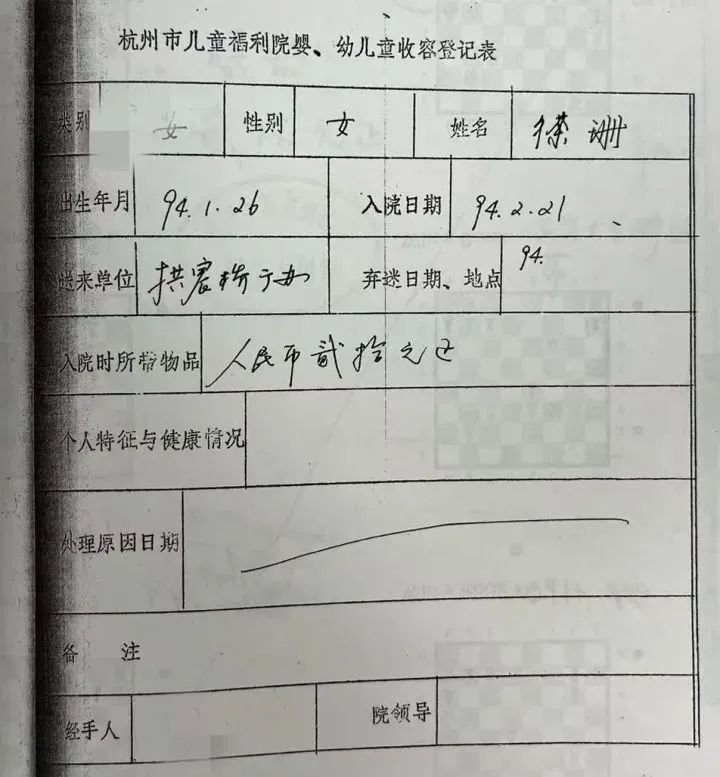 杭州市儿童福利院婴、幼儿童收容登记表
类别 女 性别 女 姓名 珊
出生年月 94.1.26 入院日期 94.2.21、
送来单位 拱宸桥于办 弃迷日期、地点 94.
入院时所带物品 人民币贰拾元正
个人特征与健康情况
处理原因日期
备 注
经手人 院领导